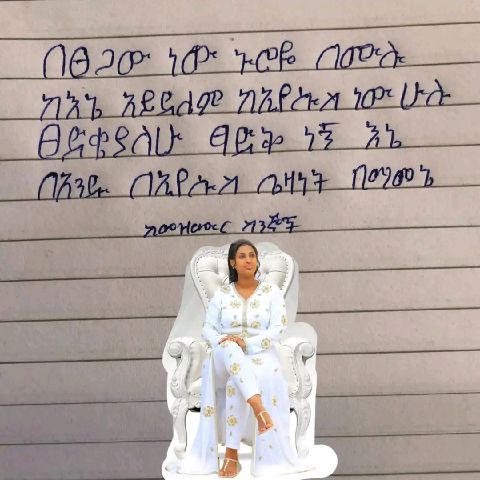 በፀጋው ነው ኑሮዬ በሙሉ
ከእኔ አይደለም ከኢየሱስ ነው ሁሉ
ፀድቄያለሁ ፃድቅ ነኝ እኔ
በአንዱ በኢየሱስ ቤዛነት በማመኔ
ከመዝሙር